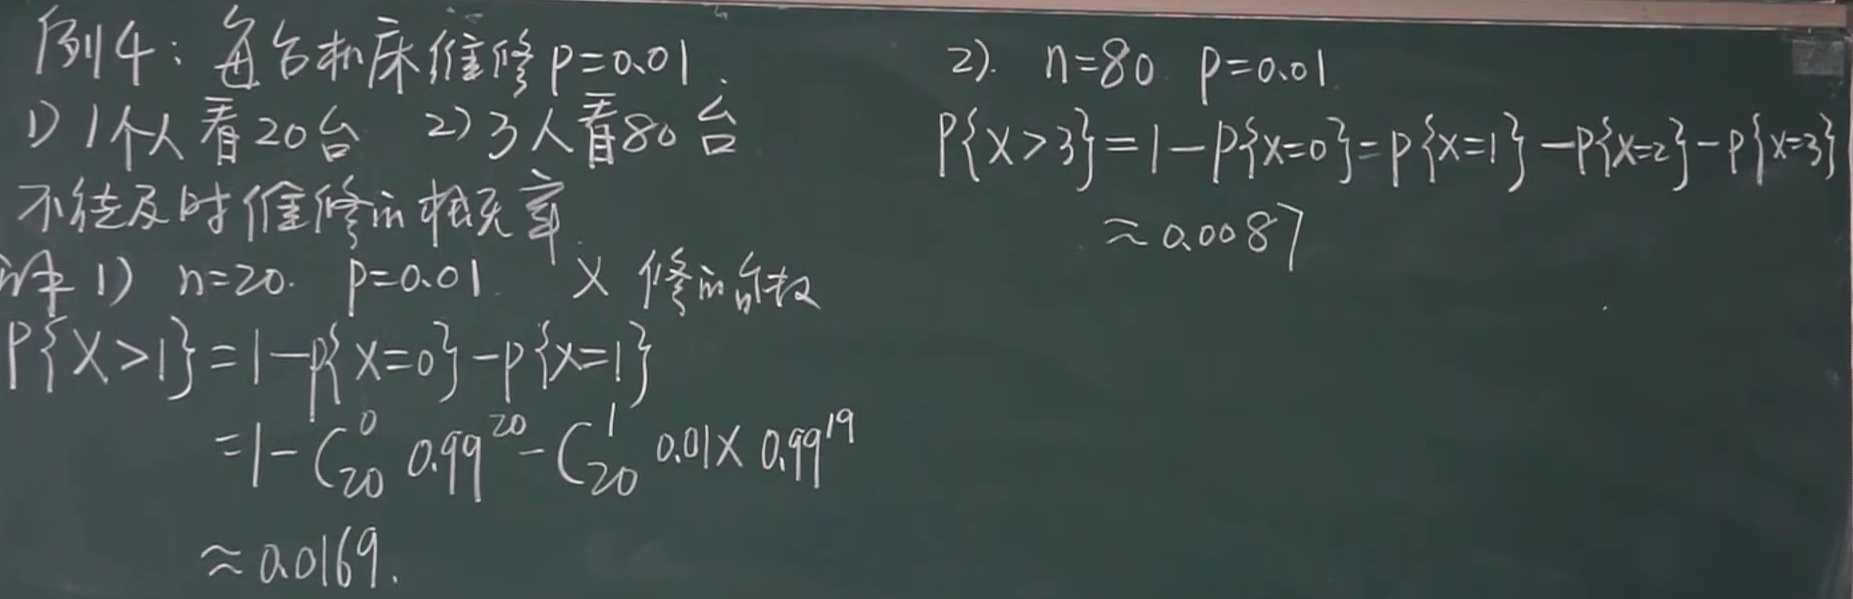 例4：每台机床维修 p=0.01.
1) 1个人看20台 2) 3人看80台
不能及时维修的概率
解 1) n=20. p=0.01. X 修的台数
P{X>1}=1-P{X=0}-P{X=1}
=1-C₂₀⁰ 0.99²⁰-C₂₀¹ 0.01×0.99¹⁹
≈0.0169.
2). n=80 p=0.01.
P{X>3}=1-P{X=0}=P{X=1}-P{X=2}-P{X=3}
≈0.0087